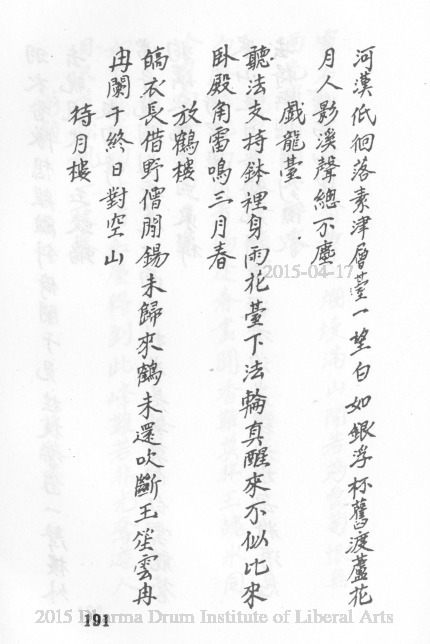 河漢低徊落素津層臺一望白如銀浮杯舊渡蘆花
月人影溪聲總不塵
戲龍臺
聽法支持鉢裡身雨花臺下法輪真醒來不似比來
臥殿角雷鳴三月春
放鶴樓
縞衣長借野僧閒錫未歸來鶴未還吹斷玉笙雲冉
冉闌干終日對空山
待月樓
2015-04-17
191
2015 Dharma Drum Institute of Liberal Arts